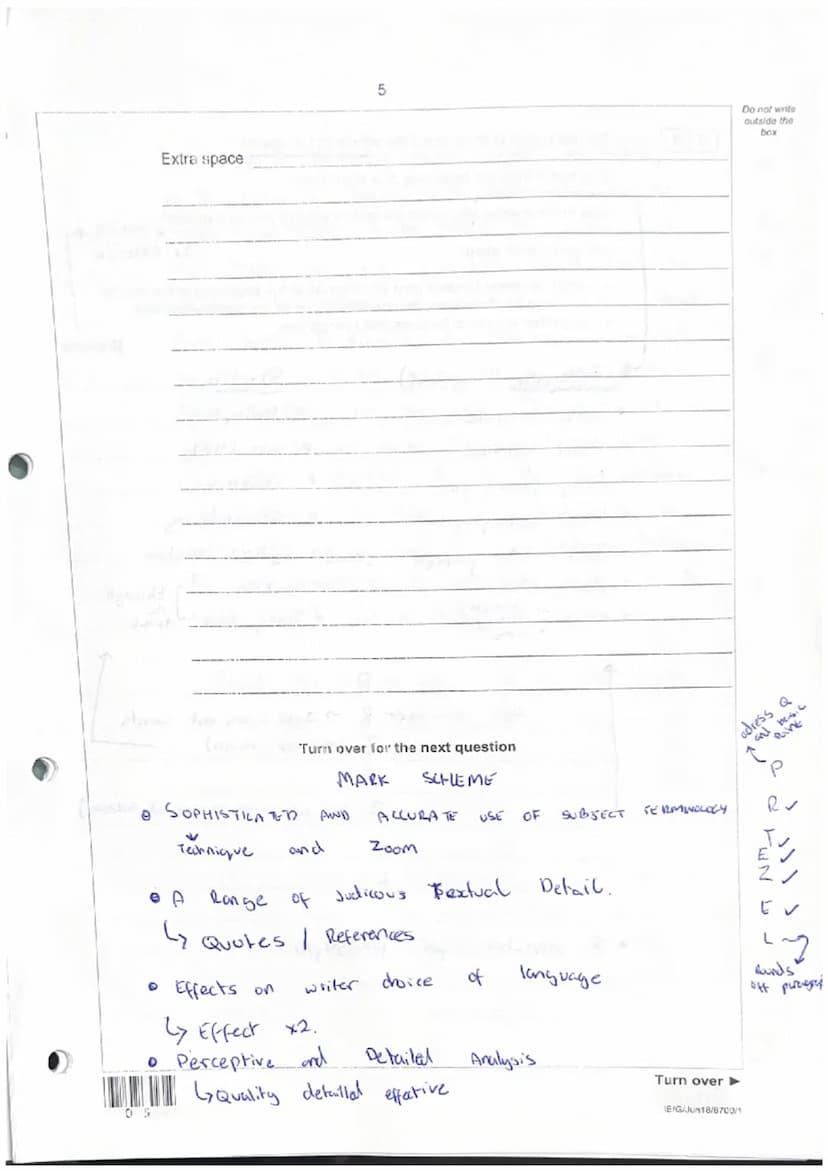 5
Do not write
outside the
box
Extra space
Turn over for the next question
MARK SCHEME
SOPHISTICATED AND ACCURATE USE OF SUBJECT TERMINOLOGY
Technique and Zoom
A Range of Judicous Textual Detail.
↳ Quotes / References
Effects on writer choice of language
↳ Effect x2.
Perceptive and Detailed Analysis
↳ Quality detailed effective
adress Q
and basic
point
P
R ✓
T ✓
E ✓
Z ✓
E ✓
L
Rounds
off paragraph
Turn over ►
0 5
IB/G/Jun18/8700/1